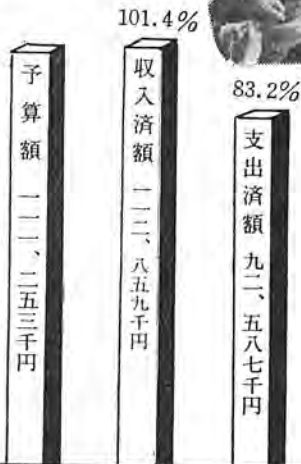 予算額 一一一、二五三千円
101.4%
収入済額 一一二、八五九千円
83.2%
支出済額 九二、五八七千円